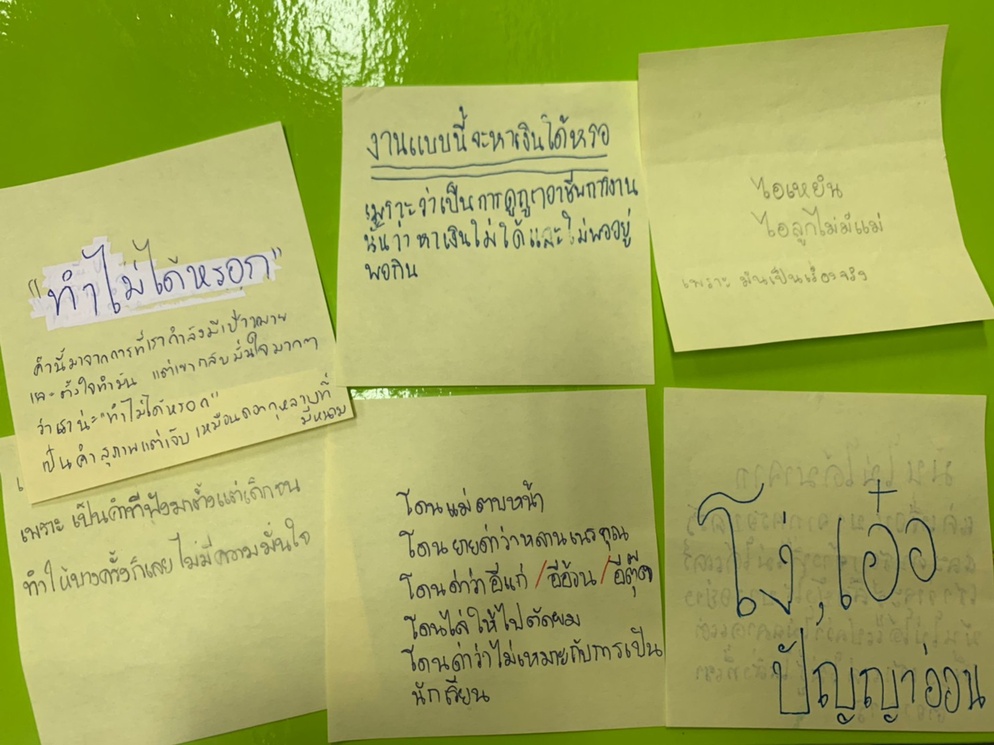 "ทำไม่ได้หรอก"
คำนี้มาจากการที่เรากำลังมีเป้าหมาย
และตั้งใจทำมัน แต่เขากลับมั่นใจมากๆ
ว่าเราน่ะ "ทำไม่ได้หรอก"
เป็นคำสุภาพแต่เจ็บ เหมือนดอกกุหลาบที่
มีหนาม
งานแบบนี้จะหาเงินได้หรอ
เพราะว่าเป็นการดูถูกอาชีพการงาน
นั้นว่า หาเงินไม่ได้ และไม่พออยู่
พอกิน
ไอเหยิน
ไอลูกไม่มีแม่
เพราะ มันเป็นเรื่องจริง
เพราะ เป็นคำที่ฟังมาตั้งแต่เด็กจน
ทำให้บางครั้งก็เลย ไม่มีความมั่นใจ
โดนแม่ตบหน้า
โดนยายด่าว่าหลานเนรคุณ
โดนด่าว่าอีแก่ / อีอ้วน / อีตุ๊ด
โดนไล่ให้ไปตัดผม
โดนด่าว่าไม่เหมาะกับการเป็น
นักเรียน
โง่, เอ๋อ
ปัญญาอ่อน